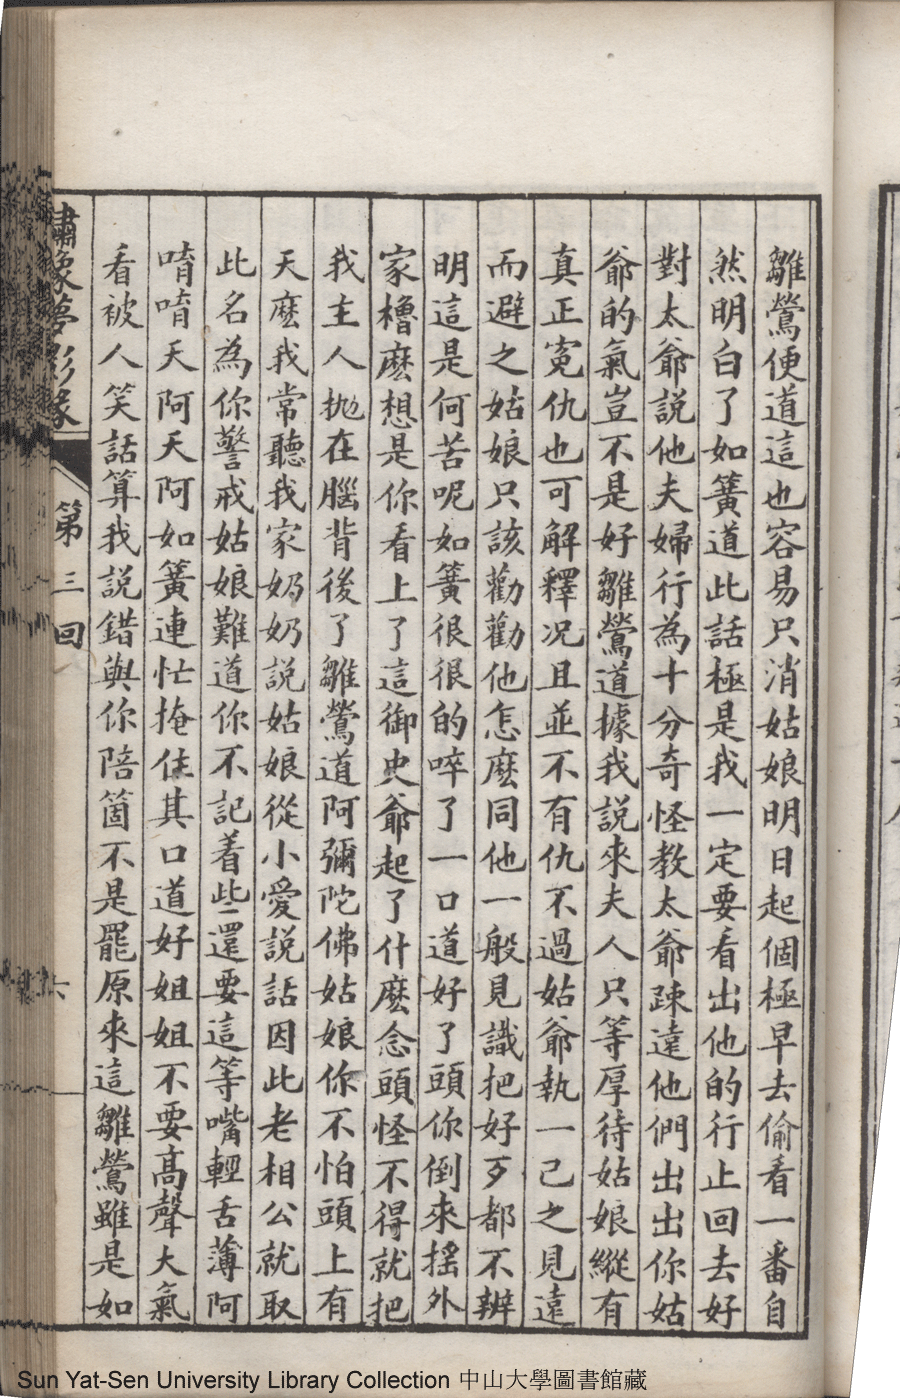 雛鶯便道這也容易只消姑娘明日起個極早去偷看一番自
然明白了如簧道此話極是我一定要看出他的行止回去好
對太爺說他夫婦行為十分奇怪教太爺踈遠他們出出你姑
爺的氣豈不是好雛鶯道據我說來夫人只等厚待姑娘縱有
真正寃仇也可解釋况且並不有仇不過姑爺執一己之見遠
而避之姑娘只該勸勸他怎麽同他一般見識把好歹都不辨
明這是何苦呢如簧很很的啐了一口道好了頭你倒來搖外
家櫓麽想是你看上了這御史爺起了什麽念頭怪不得就把
我主人抛在腦背後了雛鶯道阿彌陀佛姑娘你不怕頭上有
天麽我常聽我家奶奶說姑娘從小愛說話因此老相公就取
此名為你警戒姑娘難道你不記着些還要這等嘴輕舌薄阿
唷唷天阿天阿如簧連忙掩住其口道好姐姐不要高聲大氣
看被人笑話算我說錯與你陪箇不是罷原來這雛鶯雖是如
繡象夢影緣 第三回 六
Sun Yat-Sen University Library Collection 中山大學圖書館藏